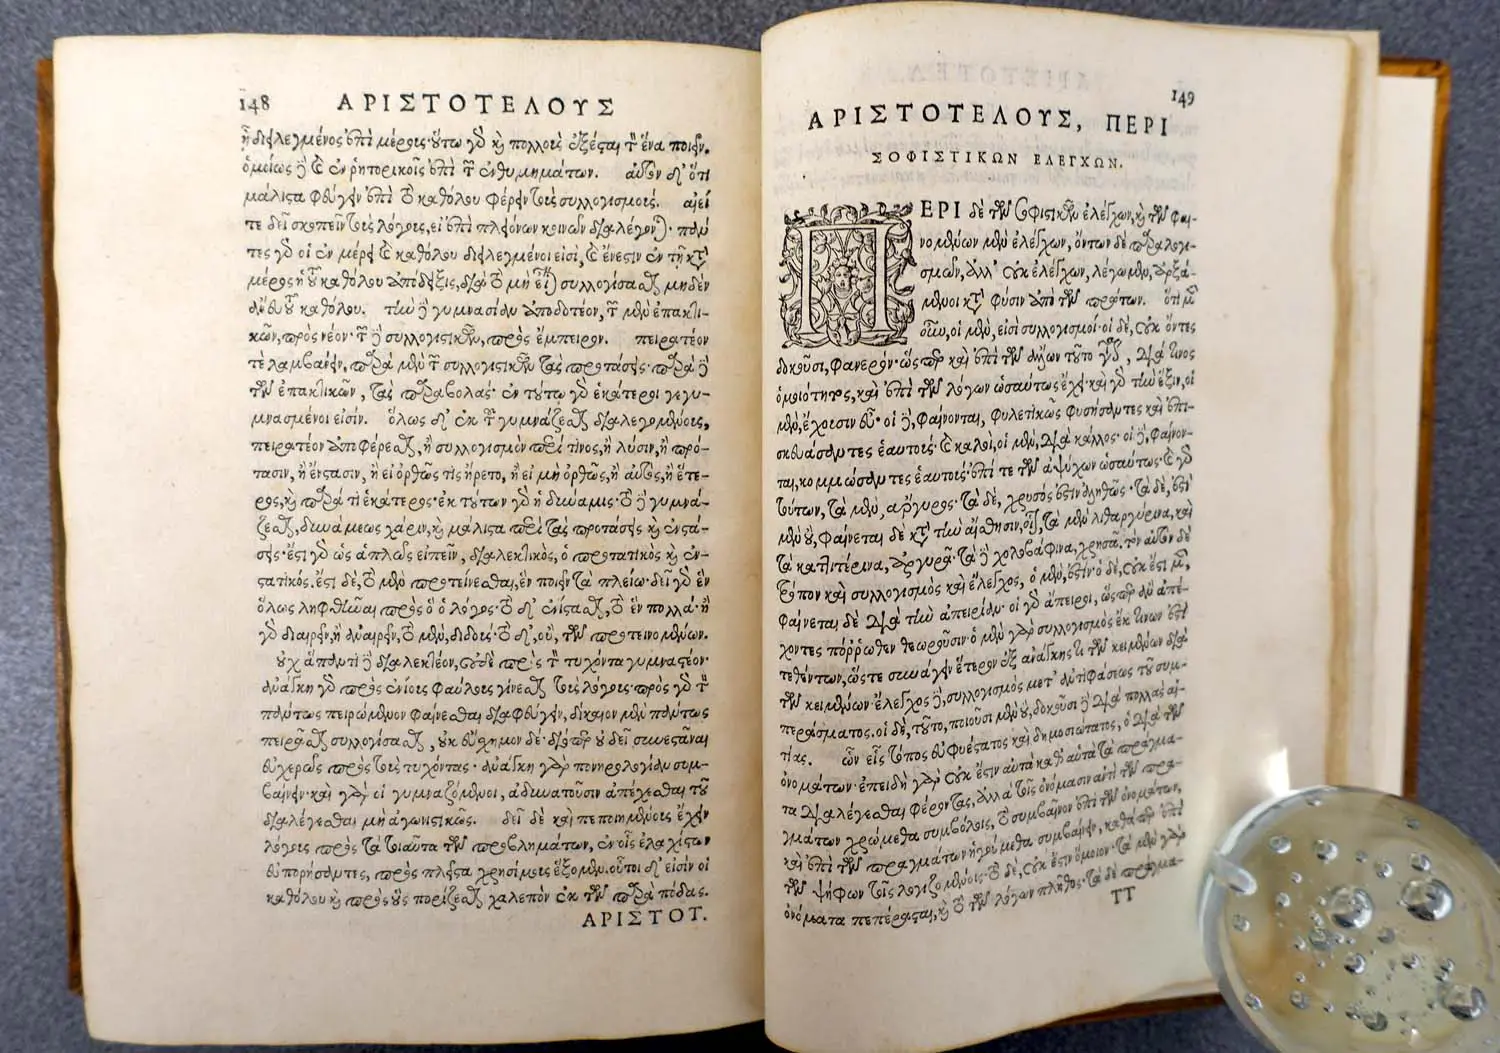 148 ΑΡΙΣΤΟΤΕΛΟΥΣ
ἢ διειλεγμένος ἐπὶ μέρους· οὕτω γὰρ καὶ πολλοὺς ἐξέσται τὸν ἕνα ποιεῖν.
ὁμοίως δὲ καὶ ἐν ῥητορικοῖς ἐπὶ τῶν ἐνθυμημάτων. αὐτὸν δ' ὅτι
μάλιστα φεύγειν ἐπὶ τὸ καθόλου φέρειν τοὺς συλλογισμούς. αἰεί
τε δεῖ σκοπεῖν τοὺς λόγους, εἰ ἐπὶ πλειόνων κοινῶν διαλέγονται· πάν
τες γὰρ οἱ ἐν μέρει καὶ καθόλου διειλεγμένοι εἰσί, καὶ ἔνεστιν ἐν τῇ κατὰ
μέρος ἡ τοῦ καθόλου ἀπόδειξις, διὰ τὸ μὴ εἶναι συλλογίσασθαι μηδὲν
ἄνευ τοῦ καθόλου. τὴν δὲ γυμνασίαν ἀποδοτέον, τῶν μὲν ἐπακτι-
κῶν, πρὸς νέον· τῶν δὲ συλλογιστικῶν, πρὸς ἔμπειρον. πειρατέον
τὲ λαμβάνειν, παρὰ μὲν τῶν συλλογιστικῶν τὰς προτάσεις· παρὰ δὲ
τῶν ἐπακτικῶν, τὰς παραβολάς· ἐν τούτῳ γὰρ ἑκάτεροι γεγυ-
μνασμένοι εἰσίν. ὅλως δ' ἐκ τοῦ γυμνάζεσθαι διαλεγομένους,
πειρατέον ἀποφέρεσθαι, ἢ συλλογισμὸν περί τινος, ἢ λύσιν, ἢ πρό-
τασιν, ἢ ἔνστασιν, ἢ εἰ ὀρθῶς τὶς ἤρετο, ἢ εἰ μὴ ὀρθῶς, ἢ αὐτὸς, ἢ ἕτε-
ρος, καὶ παρά τι ἑκάτερος· ἐκ τούτων γὰρ ἡ δύναμις· τὸ δὲ γυμνά-
ζεσθαι, δυνάμεως χάριν, καὶ μάλιστα περὶ τὰς προτάσεις καὶ ἐνστά-
σεις· ἔστι γὰρ ὡς ἁπλῶς εἰπεῖν, διαλεκτικὸς, ὁ προτατικὸς καὶ ἐν-
στατικός. ἔστι δὲ, τὸ μὲν προτείνεσθαι, ἓν ποιεῖν τὰ πλείω· δεῖ γὰρ ἓν
ὅλως ληφθῆναι πρὸς ὃ ὁ λόγος· τὸ δ' ἐνίστασθαι, τὸ ἓν πολλά· ἢ
γὰρ διαιρεῖν, ἢ ἀναιρεῖν, τὸ μὲν, διδούς· τὸ δ', οὔ, τῶν προτεινομένων.
οὐχ ἅπαντι δὲ διαλεκτέον, οὐδὲ πρὸς τὸν τυχόντα γυμναστέον·
ἀνάγκη γὰρ πρὸς ἐνίους φαύλους γίνεσθαι τοὺς λόγους· πρὸς γὰρ τὸν
πάντως πειρώμενον φαίνεσθαι διαφεύγειν, δίκαιον μὲν πάντως
πειρᾶσθαι συλλογίσασθαι, οὐκ εὔσχημον δέ· διόπερ οὐ δεῖ συνεστάναι
εὐχερῶς πρὸς τοὺς τυχόντας· ἀνάγκη γὰρ πονηρολογίαν συμ-
βαίνειν· καὶ γὰρ οἱ γυμναζόμενοι, ἀδυνατοῦσιν ἀπέχεσθαι τοῦ
διαλέγεσθαι μὴ ἀγωνιστικῶς. δεῖ δὲ καὶ πεποιημένους ἔχειν
λόγους πρὸς τὰ τοιαῦτα τῶν προβλημάτων, ἐν οἷς ἐλαχίστων
εὐπορήσαντες, πρὸς πλεῖστα χρησίμους ἕξομεν. οὗτοι δ' εἰσὶν οἱ
καθόλου καὶ πρὸς οὓς πορίζεσθαι χαλεπὸν ἐκ τῶν παρὰ πόδας.
ΑΡΙΣΤΟΤ.
149
ΑΡΙΣΤΟΤΕΛΟΥΣ, ΠΕΡΙ
ΣΟΦΙΣΤΙΚΩΝ ΕΛΕΓΧΩΝ.
ΠΕΡΙ δὲ τῶν σοφιστικῶν ἐλέγχων, καὶ τῶν φαι-
νομένων μὲν ἐλέγχων, ὄντων δὲ παραλογι-
σμῶν, ἀλλ' οὐκ ἐλέγχων, λέγωμεν, ἀρξά-
μενοι κατὰ φύσιν ἀπὸ τῶν πρώτων. ὅτι μὲν
οὖν, οἱ μὲν, εἰσὶ συλλογισμοί· οἱ δὲ, οὐκ ὄντες
δοκοῦσι, φανερόν· ὥσπερ καὶ ἐπὶ τῶν ἄλλων τοῦτο γίνεται, διά τινος
ὁμοιότητος, καὶ ἐπὶ τῶν λόγων ὡσαύτως ἔχει· καὶ γὰρ τὴν ἕξιν, οἱ
μὲν, ἔχουσιν εὖ· οἱ δὲ, φαίνονται, φυλετικῶς φυσήσαντες καὶ ἐπι-
σκευάσαντες ἑαυτούς· καὶ καλοὶ, οἱ μὲν, διὰ κάλλος· οἱ δὲ, φαίνον-
ται, κομμώσαντες ἑαυτούς· ἐπί τε τῶν ἀψύχων ὡσαύτως· καὶ γὰρ
τούτων, τὰ μὲν, ἄργυρος· τὰ δὲ, χρυσός ἐστιν ἀληθῶς· τὰ δὲ, ἐστὶ
μὲν οὔ, φαίνεται δὲ κατὰ τὴν αἴσθησιν, οἷον, τὰ μὲν λιθαργύρινα, καὶ
τὰ κασσιτέρινα, ἀργυρᾶ· τὰ δὲ χολοβάφινα, χρυσᾶ. τὸν αὐτὸν δὲ
τρόπον καὶ συλλογισμὸς καὶ ἔλεγχος, ὁ μὲν, ἔστιν· ὁ δὲ, οὐκ ἔστι μὲν,
φαίνεται δὲ διὰ τὴν ἀπειρίαν· οἱ γὰρ ἄπειροι, ὥσπερ ἂν ἀπέ-
χοντες πόρρωθεν θεωροῦσιν· ὁ μὲν γὰρ συλλογισμὸς ἐκ τινῶν ἐστὶ
τεθέντων, ὥστε συνάγειν ἕτερον ἐξ ἀνάγκης τι τῶν κειμένων διὰ
τῶν κειμένων· ἔλεγχος δὲ, συλλογισμὸς μετ' ἀντιφάσεως τοῦ συμ-
περάσματος. οἱ δὲ, τοῦτο, ποιοῦσι μὲν οὔ, δοκοῦσι δὲ διὰ πολλὰς αἰ-
τίας. ὧν εἷς τόπος εὐφυέστατος καὶ δημοσιώτατος, ὁ διὰ τῶν
ὀνομάτων· ἐπειδὴ γὰρ οὐκ ἔστιν αὐτὰ καθ' αὑτὰ τὰ πράγμα-
τα διαλέγεσθαι φέροντας, ἀλλὰ τοῖς ὀνόμασιν ἀντὶ τῶν πρα-
γμάτων χρώμεθα συμβόλοις, τὸ συμβαῖνον ἐπὶ τῶν ὀνομάτων,
καὶ ἐπὶ τῶν πραγμάτων ἡγούμεθα συμβαίνειν, καθάπερ ἐπὶ
τῶν ψήφων τοῖς λογιζομένοις· τὸ δὲ, οὐκ ἔστιν ὅμοιον· τὰ μὲν γὰρ
ὀνόματα πεπέρασται, καὶ τὸ τῶν λόγων πλῆθος· τὰ δὲ πράγμα-
ΤΤ